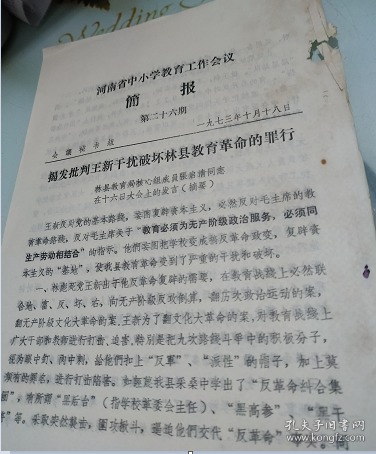 Wedding
河南省中小学教育工作会议
簡报
第二十六期
会议秘书组
一九七三年十月十八日
揭发批判王新干扰破坏林县教育革命的罪行
林县教育局核心组成员张治清同志
在十六日大会上的发言（摘要）
王新反对党的基本路线，妄图复辟资本主义，必然反对毛主席的教
育革命路线，反对毛主席关于“教育必须为无产阶级政治服务，必须同
生产劳动相结合”的指示。他们妄图把学校变成搞反革命政变，复辟资
本主义的“基地”，使我县教育革命受到了严重的干扰和破坏。
一、林彪死党王新出于他反革命复辟的需要，在教育战线上必然联
合地、富、反、坏、右，向无产阶级反攻倒算，翻历次政治运动的案，
翻无产阶级文化大革命的案。王新为了翻文化大革命的案，对教育战线上
广大干部和教师进行打击、迫害，特别是把九次路线斗争中的积极分子，
视为眼中钉、肉中刺，给他们扣上“反军”、“派性”的帽子，加上莫
须有的罪名，进行打击陷害。如诬陷我县采桑中学出了“反革命纠合集
团”，南所谓“黑后台”（指学校革委会主任）、“黑高参”、“黑干
”等。采取突然袭击，围攻批斗，逼迫他们交代“反革命”
孔夫子旧书网